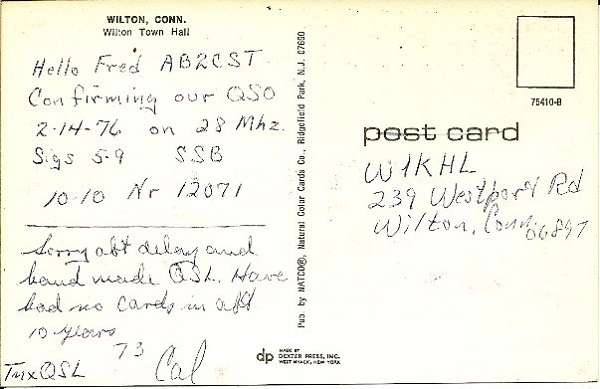 WILTON, CONN.
Wilton Town Hall
Hello Fred AB2CST
Confirming our QSO
2-14-76 on 28 Mhz.
Sigs 5-9 SSB
10-10 Nr 12071
Sorry abt delay and
hand made QSL. Have
had no cards in abt
10 years
73 Cal
Tnx QSL
Pub. by NATCO®, Natural Color Cards Co., Ridgefield Park, N.J. 07660
75410-B
post card
W1KHL
239 Westport Rd
Wilton, Conn.
06897
dp MADE BY
DEXTER PRESS, INC.
WEST NYACK, NEW YORK